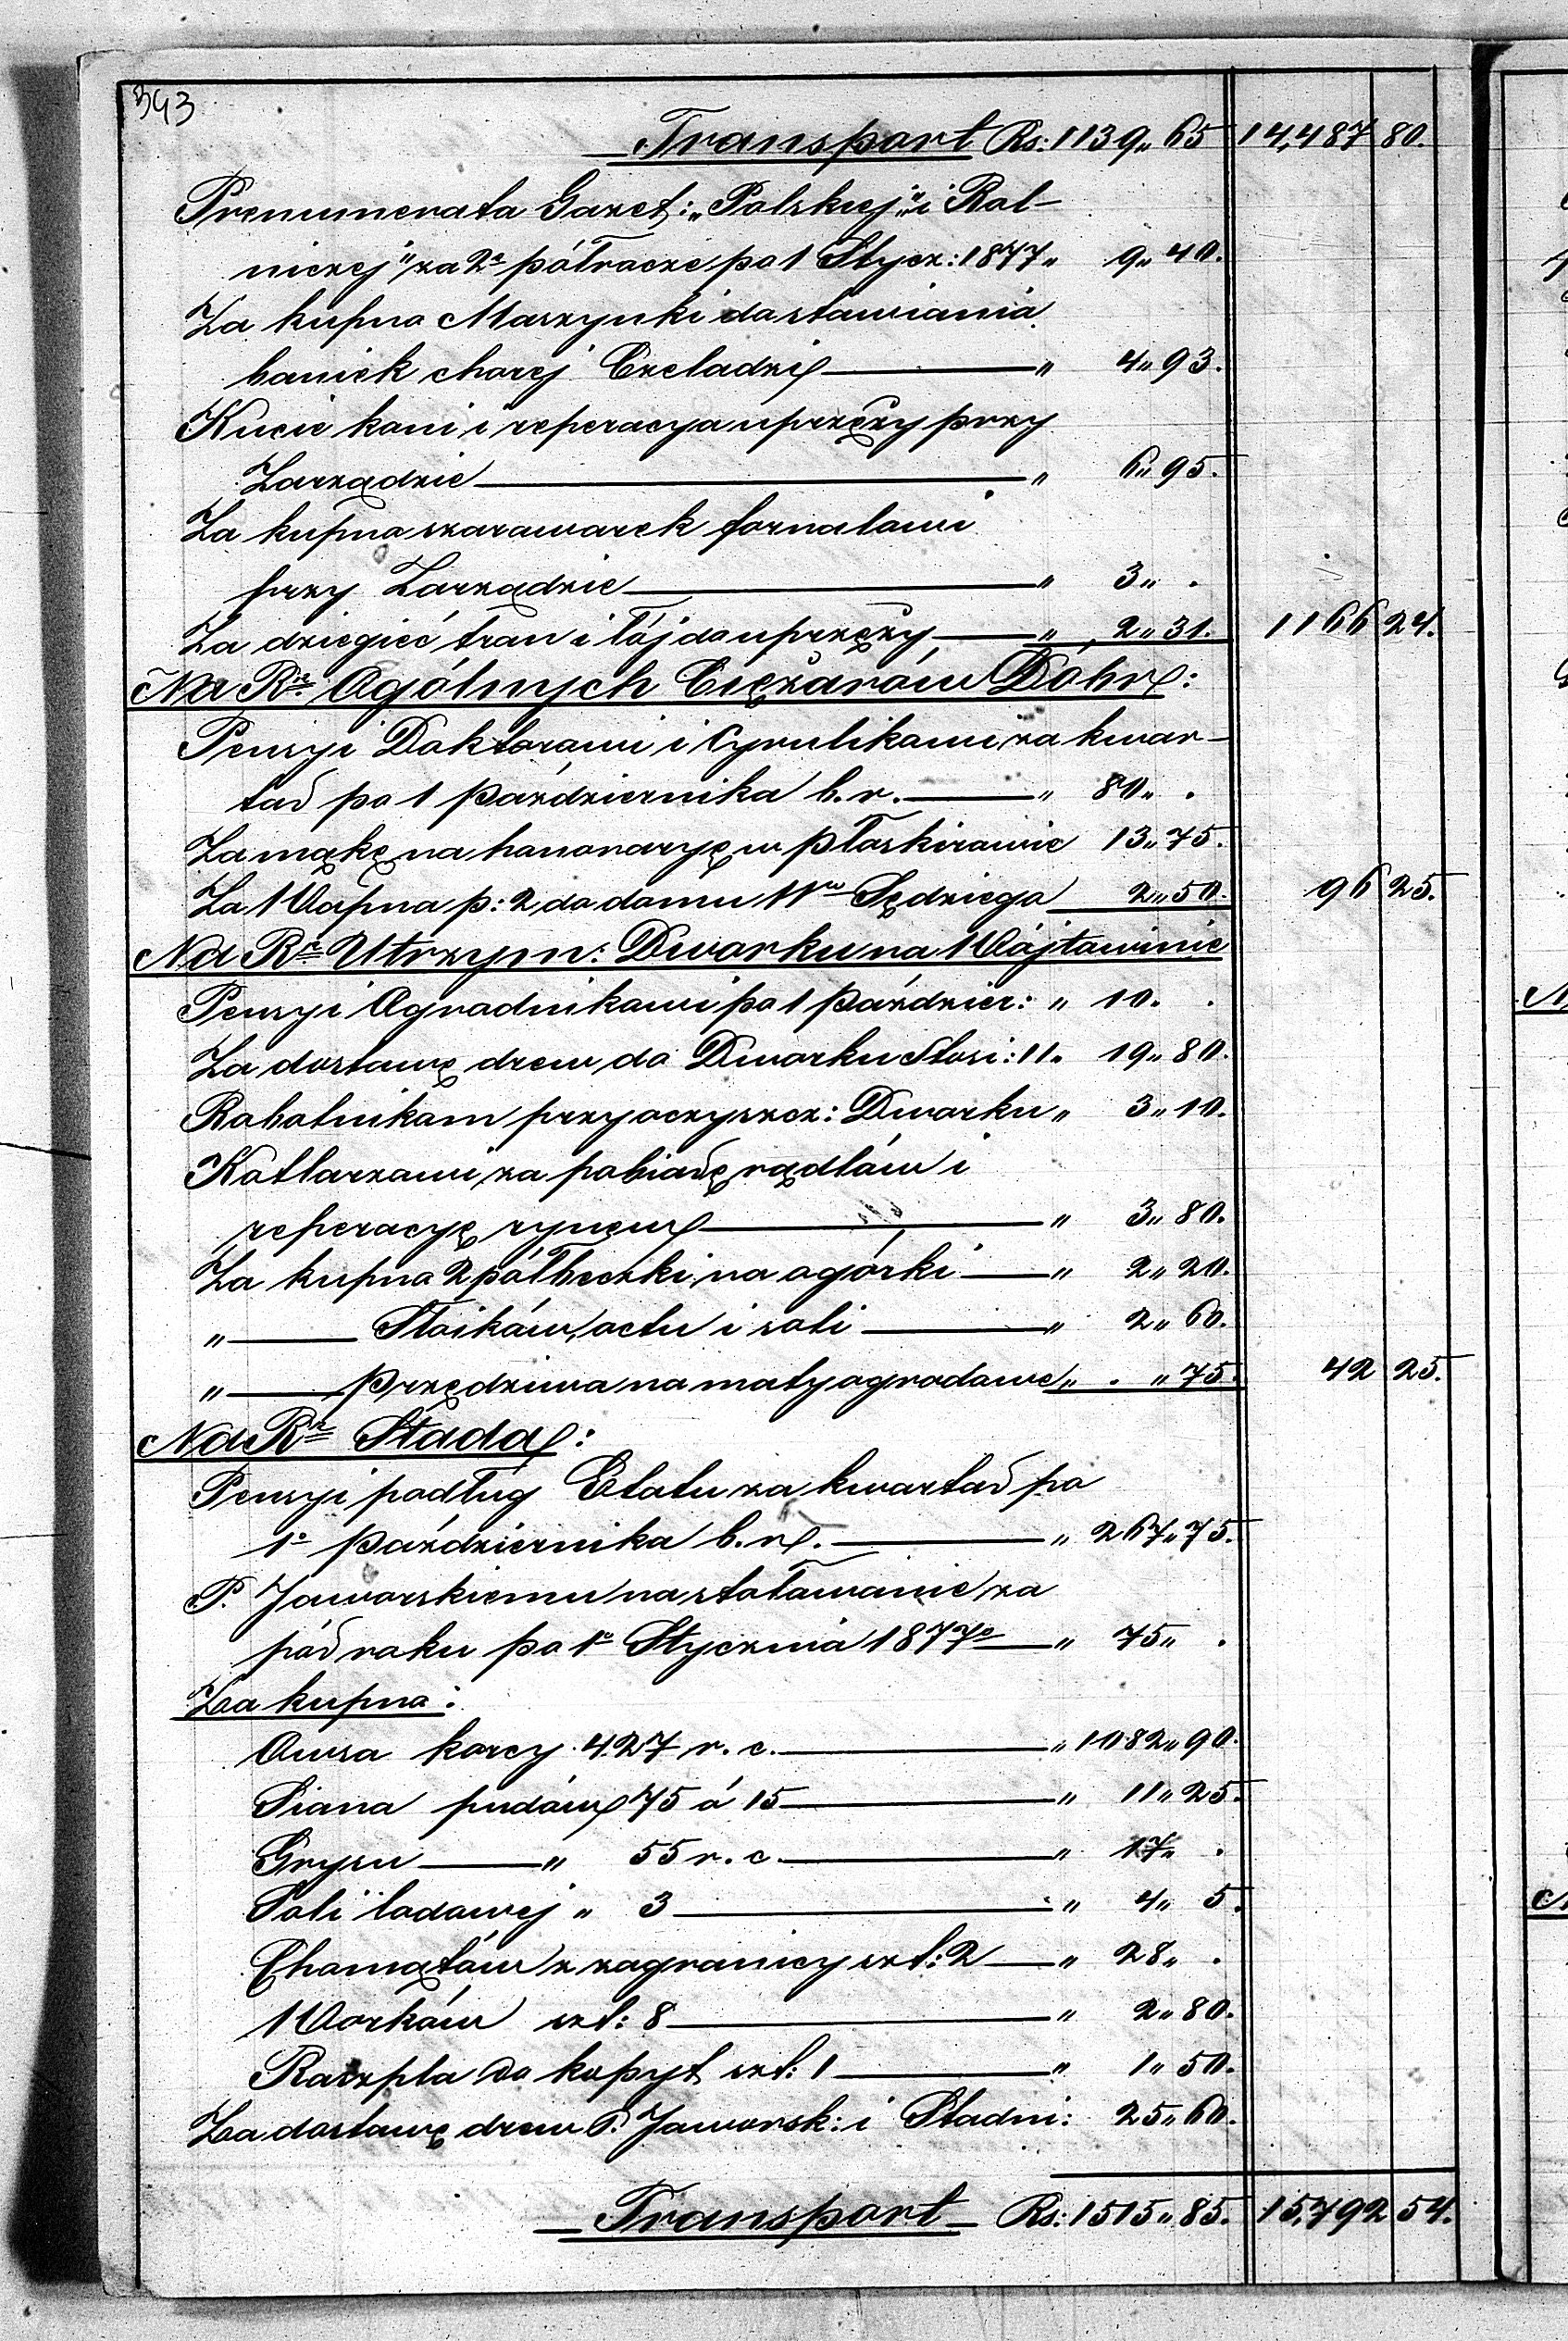 343
Transport Rs: 1139„ 65 14,487 80.
Prenumerata Gazet: „Polskiej” i Rol-
niczej” za 2e półrocze po 1 Stycz: 1877„ 9„ 40.
Za kupno Maszynki do stawiania
baniek chorej Czeladzi „ 4„ 93.
Kucie koni i reperacya uprzęży przy
Zarządzie „ 6„ 95.
Za kupno szarawarek fornalowi
przy Zarządzie „ 3„ .
Za dziegieć tran i łój do uprzęży „ 2„ 31. 1166 24.
Na Rk Ogólnych Ciężarów Dóbr:
Pensyi Doktorowi i Cyrulikowi za kwar-
tał po 1 Października b.r. „ 80„ .
Za mąkę na honoraryę w Płoskirowie 13„ 75.
Za Wapna p: 2 do domu W Sędziego 2„ 50. 96 25.
Na Rk Utrzym: Dworku na Wójtowinie
Pensyi Ogrodnikowi po 1 Paździer: „ 10. .
Za dostawę drew do Dworku Stosi: 11„ 19„ 80.
Robotnikom przy oczyszcz: Dworku „ 3„ 10.
Kotlarzowi za pobiałę rądlów i
reperacyę rynew „ 3„ 80.
Za kupno 2 półbeczki na ogórki „ 2„ 20.
„ Słoików, octu i soli „ 2„ 60.
„ Przędziwa na maty ogrodowe „ . „ 75. 42 25.
Na Rk Stada:
Pensyi podług Etatu za kwartał po
1o Października b.r. „ 267„ 75.
P. Jaworskiemu na stołowanie za
pół roku po 1o Stycznia 1877o „ 75„ .
Za kupno:
Owsa korcy 427 r. c. „ 1082„ 90.
Siana pudów 75 á 15 „ 11„ 25.
Grysu „ 55 r. c. „ 17„ .
Soli lodowej „ 3 „ 4„ 5.
Chomątów z zagranicy szt: 2 „ 28„ .
Worków szt: 8 „ 2„ 80.
Raszpla do kopyt szt: 1 „ 1„ 50.
Za dostawę drew P. Jaworsk: i Stadni: 25„ 60.
Transport Rs: 1515„ 85. 15,792 54.